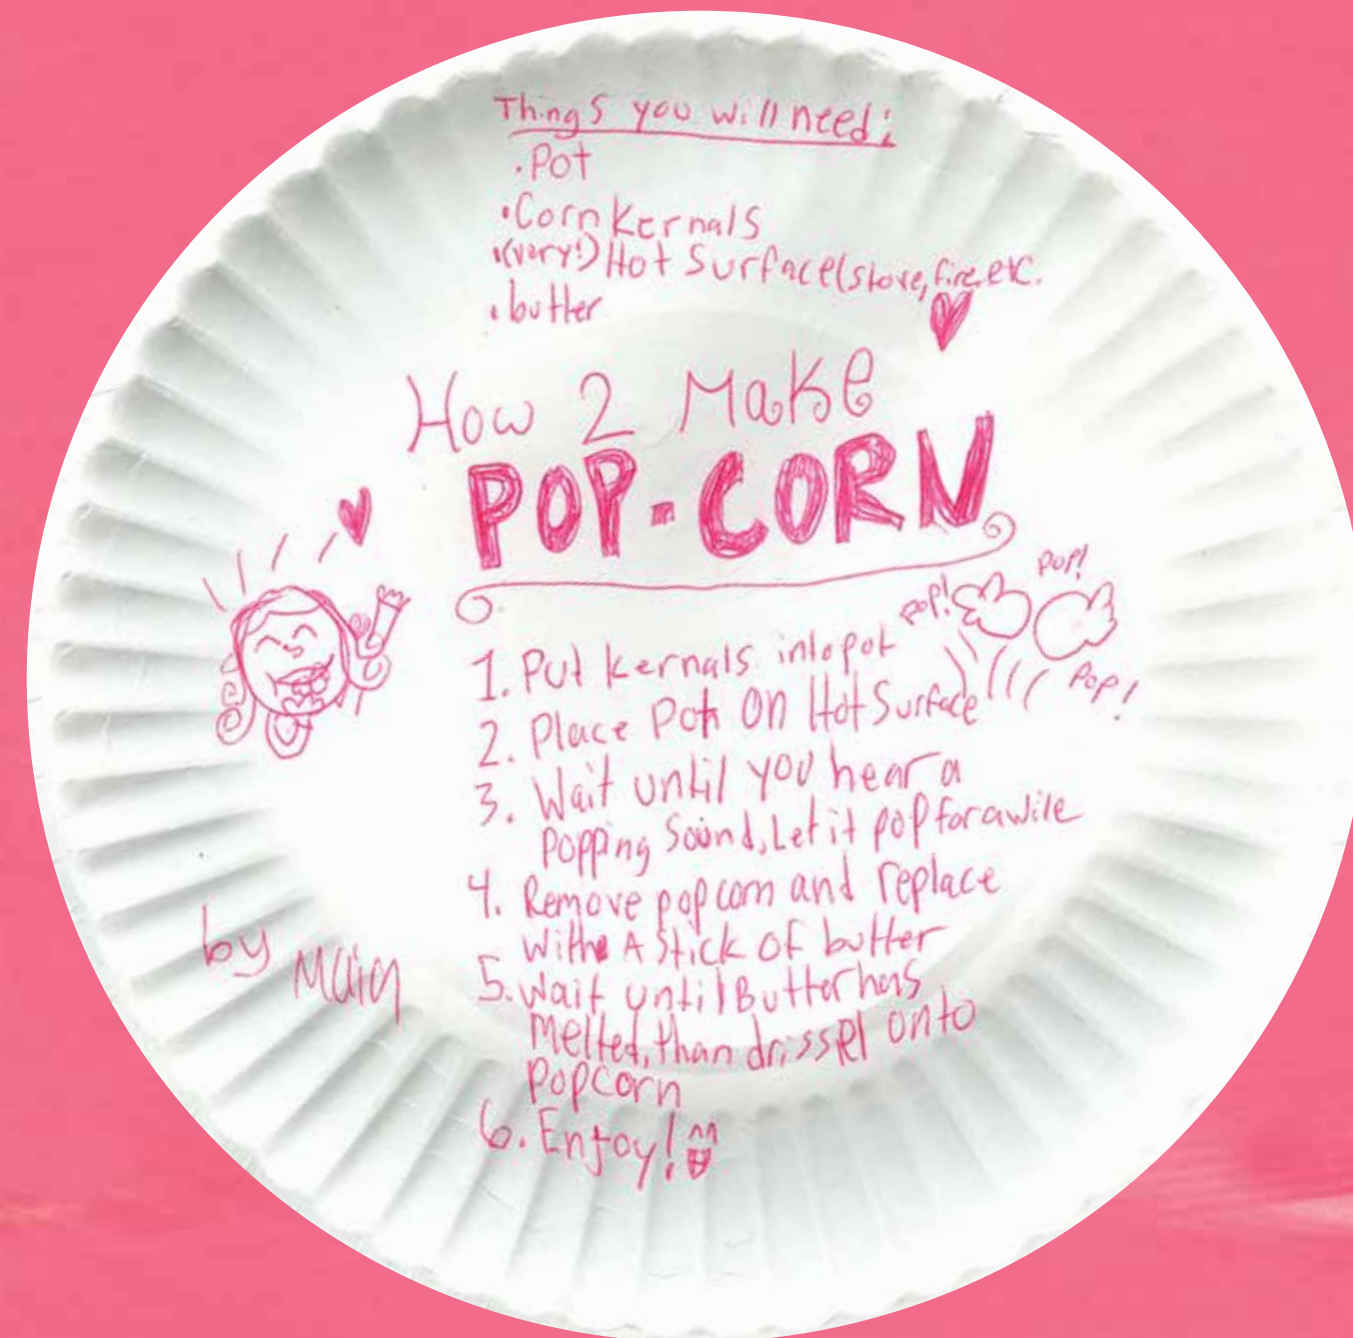 Things you will need:
• Pot
• Corn Kernals
• (very!) Hot Surface (stove, fire, etc.
• butter
How 2 Make
POP-CORN
pop!
pop!
pop!
1. Put kernals into pot
2. Place Pot On Hot Surface
3. Wait until you hear a
popping Sound, Let it pop for awile
4. Remove popcorn and replace
with A Stick Of butter
5. Wait until Butter has
Melted, than drissel onto
Popcorn
6. Enjoy!
by